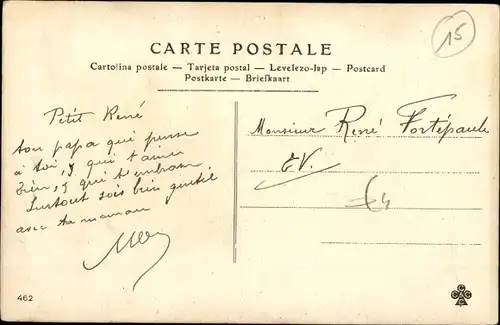 CARTE POSTALE
Cartolina postale — Tarjeta postal — Levelezo-lap — Postcard
Postkarte — Briefkaart
15
Petit René
ton papa qui pense
à toi, & qui t'aime
bien, & qui t'embrasse
Surtout sois bien gentil
avec ta maman
Monsieur René Fortépaule
EV.
£4
462